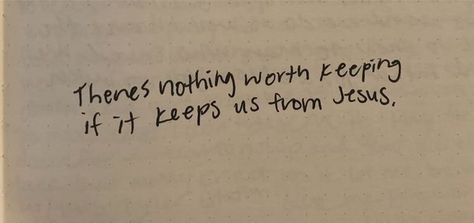 Theres nothing worth keeping
if it keeps us from Jesus.